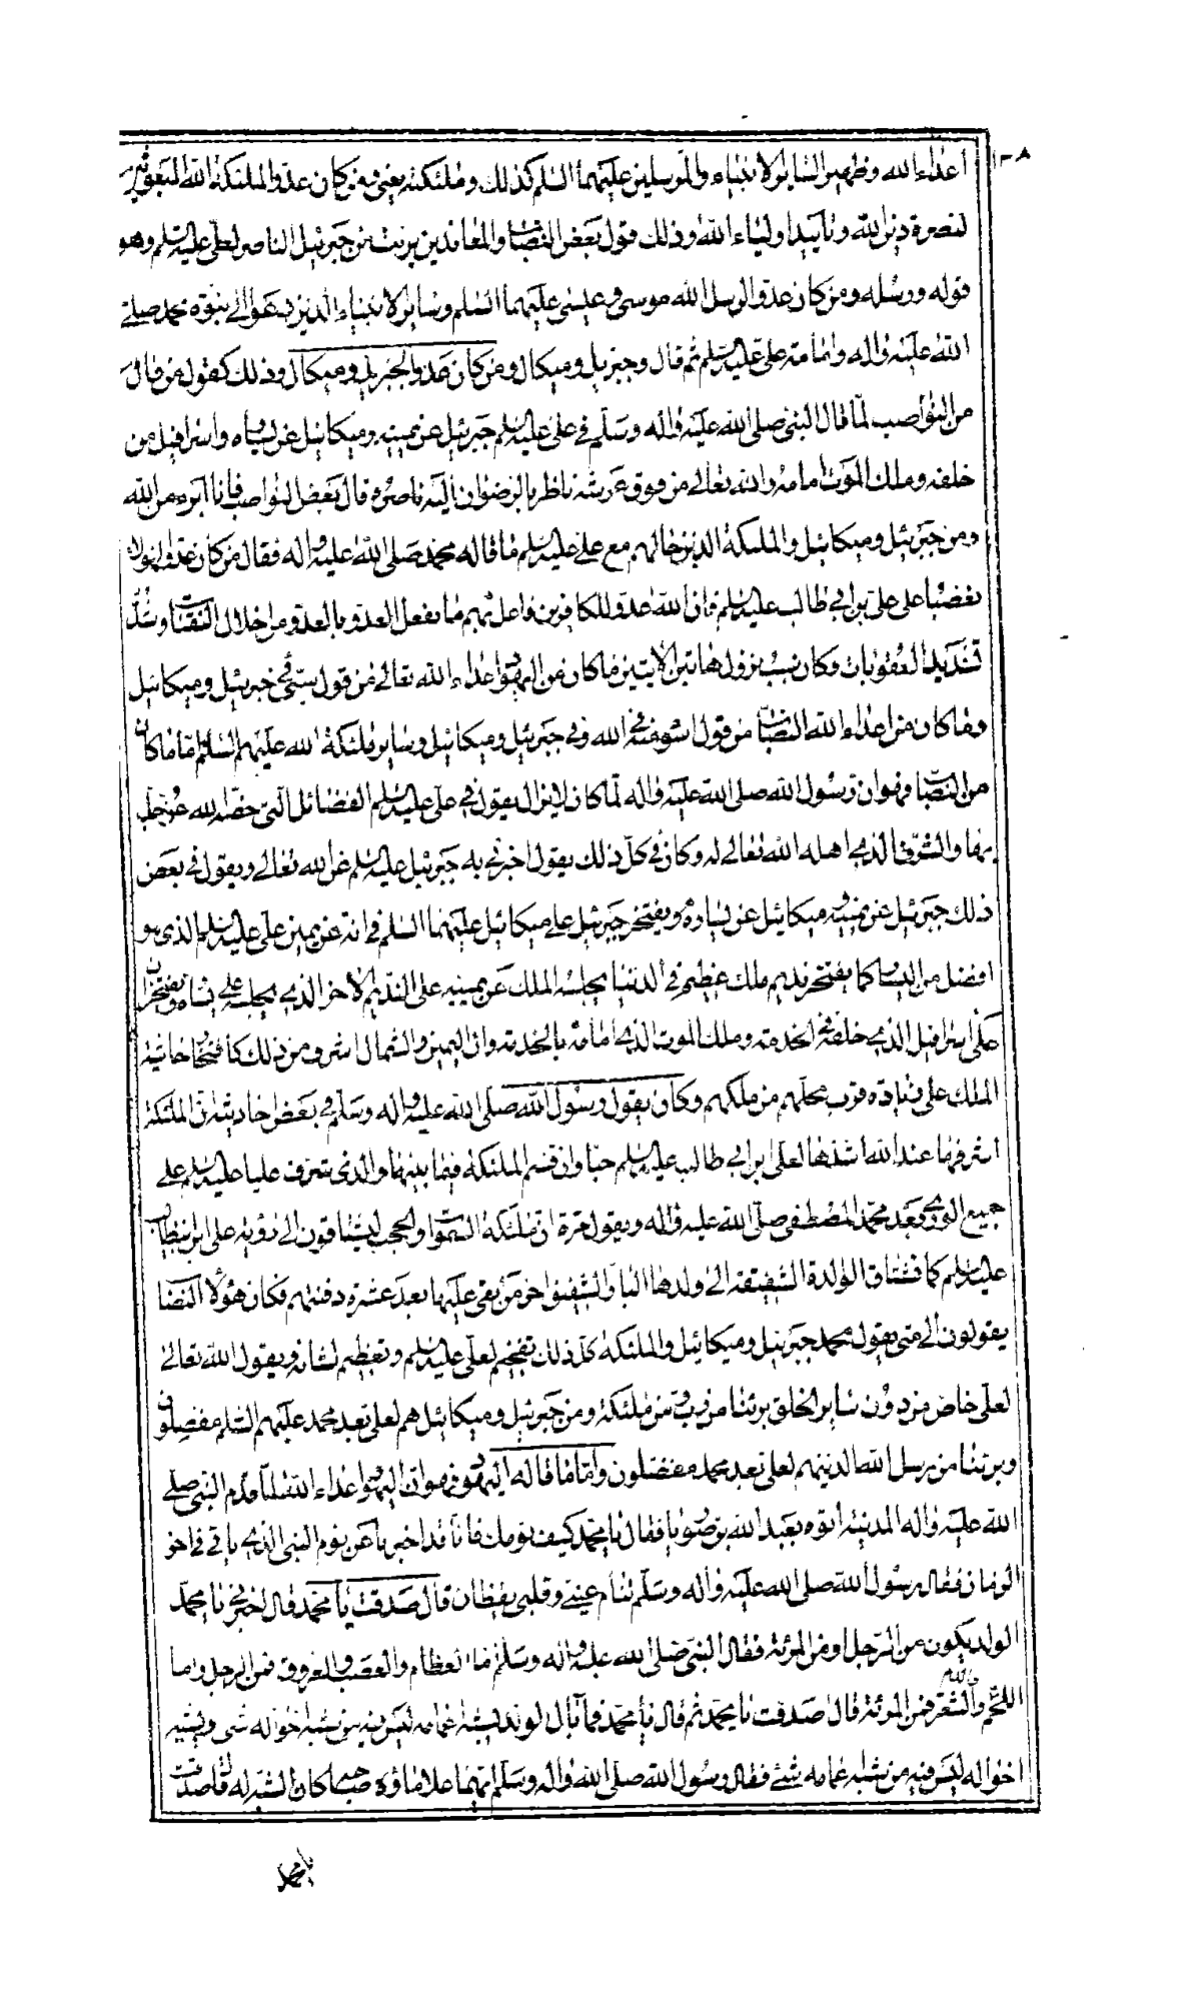 ١٣٨
اعداء الله وظهير لسائر الانبياء والمرسلين عليهما السلم كذلك وملئكته يعني ومن كان عدوا لملئكة الله المبعوثين
لنصرة دين الله وتأييد اولياء الله وذلك قول بعض النصاب والمعاندين برئت من جبرئيل الناصر لعلي عليه السلم وهو
قوله ورسله ومن كان عدوا لرسل الله موسى وعيسى عليهما السلم وسائر الانبياء الذين دعوا الى نبوة محمد صلى
الله عليه واله وامامة علي عليه السلم ثم قال وجبريل وميكال ومن كان عدوا لجبريل وميكال وذلك كقول من قال
من النواصب لما قال النبي صلى الله عليه واله وسلم في علي عليه السلم جبرئيل عن يمينه وميكائيل عن يساره واسرافيل من
خلفه وملك الموت امامه والله تعالى من فوق عرشه ناظر بالرضوان اليه ناصره قال بعض النواصب فانا ابرء من الله
ومن جبرئيل وميكائيل والملئكة الذين حالهم مع علي عليه السلم ما قاله محمد صلى الله عليه واله فقال من كان عدوا لهؤلاء
تعصبا على علي بن ابي طالب عليه السلم فان الله عدو للكافرين فاعل بهم ما يفعل العدو بالعدو من احلال النقمات و
تشديد العقوبات وكان سبب نزول هاتين الايتين ما كان من اليهود اعداء الله تعالى من قول سيئ في جبرئيل وميكائيل
وما كان من اعداء الله النصاب من قول اسوء منه في الله وفي جبرئيل وميكائيل وسائر ملئكة الله عليهم السلم اما ما كان
من النصاب فهو ان رسول الله صلى الله عليه واله لما كان لا يزال يقول في علي عليه السلم الفضائل التي خصه الله عز وجل
بها والشرف الذي اهله الله تعالى له وكان في كل ذلك يقول اخبرني به جبرئيل عليه السلم عن الله تعالى ويقول في بعض
ذلك جبرئيل عن يمينه وميكائيل عن يساره ويفتخر جبرئيل على ميكائيل عليهما السلم في انه عن يمين علي عليه السلم الذي هو
افضل من اليسار كما يفتخر نديم ملك عظيم في الدنيا يجلسه الملك عن يمينه على النديم الاخر الذي يجلسه على يساره ويفتخران
على اسرافيل الذي خلفه في الخدمة وملك الموت الذي امامه بالخدمة وان اليمين والشمال اشرف من ذلك كافتخار حاشية
الملك على زيادة قرب محلهم من ملكهم وكان يقول رسول الله صلى الله عليه واله وسلم في بعض احاديثه ان الملئكة
اشرفها عند الله اشدها لعلي ابن ابي طالب عليه السلم حبا وان قسم الملئكة فيما بينها والذي شرف عليا عليه السلم على
جميع الورى بعد محمد المصطفى صلى الله عليه واله ويقول مرة ان ملئكة السموات والحجب ليشتاقون الى رؤية علي ابن ابيطالب
عليه السلم كما تشتاق الوالدة الشفيقة الى ولدها البار الشفيق اخر من بقي عليها بعد عشرة دفنتهم فكان هؤلاء النصاب
يقولون الى متى يقول محمد جبرئيل وميكائيل والملئكة كل ذلك تفخيم لعلي عليه السلم وتعظيم لشانه ويقول الله تعالى
لعلي خاص من دون سائر الخلق برئنا من رب ومن ملئكة ومن جبرئيل وميكائيل هم لعلي بعد محمد عليهم السلم مفضلون
وبرئنا من رسل الله الذينهم لعلي بعد محمد مفضلون واما ما قاله اليهود فهو ان اليهود اعداء الله فلما قدم النبي صلى
الله عليه واله المدينة اتوه بعبد الله بن صوريا فقال يا محمد كيف نومك فانا قد اخبرنا عن نوم النبي الذي ياتي في اخر
الزمان فقال رسول الله صلى الله عليه واله وسلم تنام عيني وقلبي يقظان قال صدقت يا محمد قال اخبرني يا محمد
الولد يكون من الرجل او من المرئة فقال النبي صلى الله عليه واله وسلم اما العظام والعصب والعروق فمن الرجل واما
اللحم والدم والشعر فمن المرئة قال صدقت يا محمد ثم قال يا محمد فما بال الولد يشبه اعمامه ليس فيه من شبه اخواله شئ ويشبه
اخواله ليس فيه من شبه اعمامه شئ فقال رسول الله صلى الله واله وسلم ايهما علا ماؤه صاحبه كان الشبه له قال صدقت
يا محمد